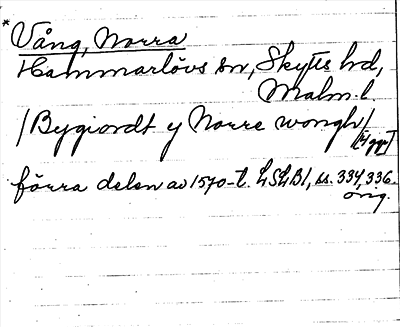 * Vång, Norra
Hammarlövs sn, Skytts hd,
Malm. l.
/Bygiordt y Norre wongh/
[4 ggr]
förra delen av 1570-t. LSLB1, ss. 334, 336.
orig.